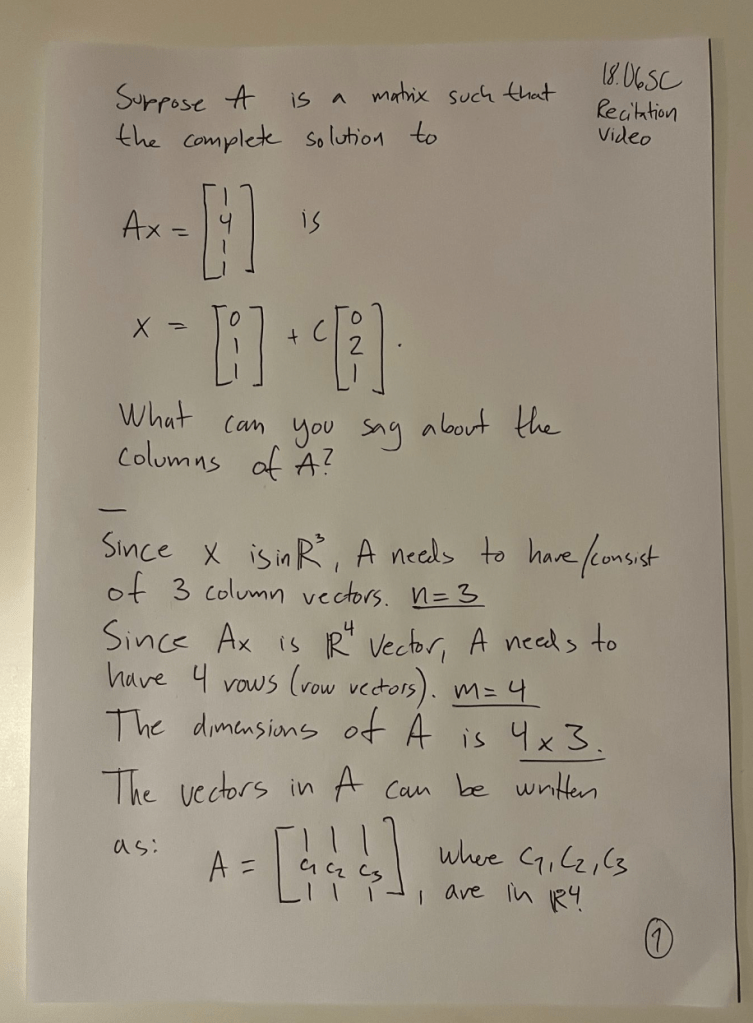 Suppose A is a matrix such that
the complete solution to
18.06SC
Recitation
Video
Ax = [1 4 1 1] is
x = [0 1 1] + c [0 2 1].
What can you say about the
columns of A?
Since x is in R³, A needs to have/consist
of 3 column vectors. n=3
Since Ax is ℝ⁴ vector, A needs to
have 4 rows (row vectors). m=4
The dimensions of A is 4x3.
The vectors in A can be written
as:
A = [| | | C1 C2 C3 | | |], where C1, C2, C3
are in ℝ4.
1